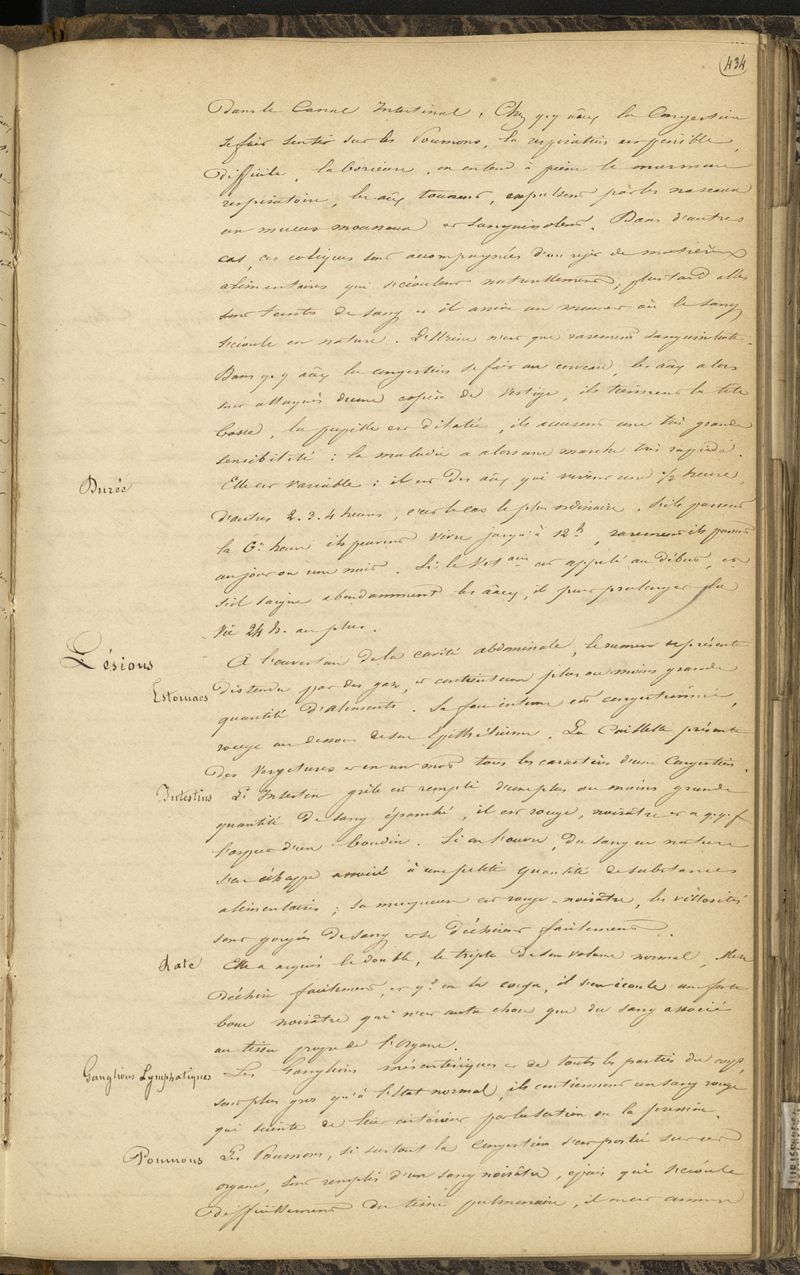 434
Dans le Canal Intestinal. Chez qq. aux la Congestion
se fait sentir sur les Poumons, la respiration est pénible,
difficile, laborieuse, on entend à peine le murmure
respiratoire, les aux toussent, expulsent par les naseaux
un mucus mousseux et sanguinolent. Dans d'autres
cas, ces coliques sont accompagnées d'un rejet de matières
alimentaires qui s'écoulent naturellement, plus tard elles
sont teintes de sang et il arrive un moment où le sang
s'écoule en nature. L'Urine n'est que rarement sanguinolente.
Dans qq. aux la congestion se fait au cerveau, les aux alors
sont attaqués d'une espèce de vertige, ils tiennent la tête
basse, la pupille est dilatée, ils accusent une très grande
sensibilité : la maladie a alors une marche très rapide.
Durée
Elle est variable : il est des aux qui vivent une ½ heure,
d'autres 2. 3. 4 heures, c'est le cas le plus ordinaire. S'ils passent
la 6e heure ils peuvent vivre jusqu'à 12h, rarement ils passent
un jour ou une nuit. Si le Vétaire est appelé au début, et
s'il saigne abondamment les aux, il peut prolonger la
vie 24 h. au plus.
Lésions
A l'ouverture de la cavité abdominale, le rumen se présente
Estomacs
distendu par des gaz, et contient une plus ou moins grande
quantité d'aliments. Sa face interne est congestionnée,
rouge au dessous de son épithélium. La Caillette présente
des vergetures et en un mot tous les caractères d'une Congestion.
Intestins
L'Intestin grêle est rempli d'une plus ou moins grande
quantité de sang épanché, il est rouge, noirâtre et a qq. f
l'aspect d'un boudin. Si on l'ouvre, du sang en nature
s'en échappe associé à une petite quantité de substances
alimentaires ; sa muqueuse est rouge-noirâtre, les villosités
sont gorgées de sang et se déchirent facilement.
Rate
Elle a acquis le double, le triple de son volume normal, Elle se
déchire facilement, et qd on la coupe, il s'en écoule une forte
boue noirâtre qui n'est autre chose que du sang associé
au tissu propre de l'organe.
Ganglions Lymphatiques
Les Ganglions mésentériques et de toutes les parties du corps,
sont plus gros qu'à l'état normal, ils contiennent un sang rouge
qui suinte de leur intérieur par la section ou la pression.
Poumons
Les Poumons, si surtout la Congestion s'est portée sur cet
organe, sont remplis d'un sang noirâtre, épais qui s'écoule
difficilement du tissu pulmonaire, il en est comme